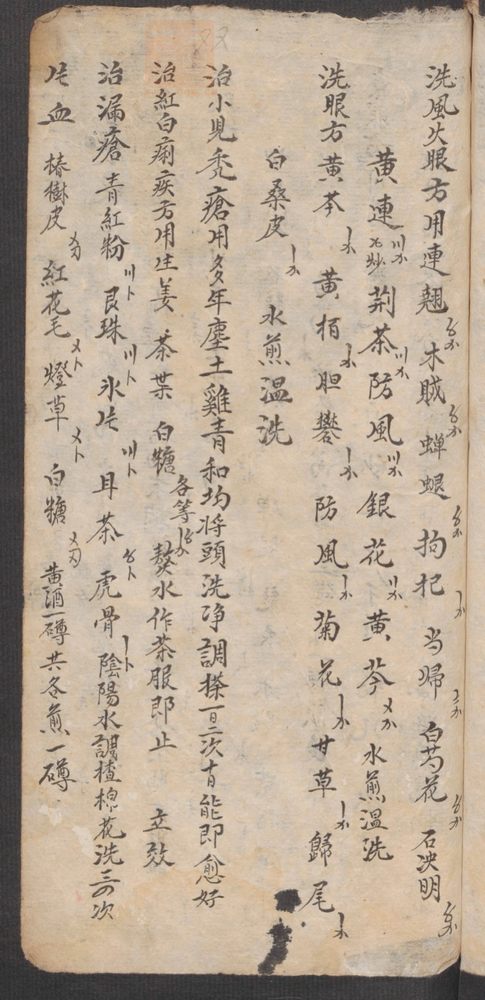 洗風火眼方用連翹 木賊 蟬蜕 拘杞 当歸 白芍花 石决明
黄連 荆茶 防風 銀花 黄芩 水煎温洗
洗眼方 黄芩 黄栢 胆礬 防風 菊花 甘草 歸尾
白桑皮 水煎温洗
治小児秃瘡用多年塵土雞青和均将頭洗净調搽一二次十日能即愈好
治紅白痢疾方用生姜 茶葉 白糖各等 熬水作茶服即止 立效
治漏瘡 青紅粉 艮珠 氷片 耳茶 虎骨 陰陽水調揸棉花洗三四次
吐血 椿樹皮 紅花毛 燈草 白糖 黄酒一磚共各煎一磚